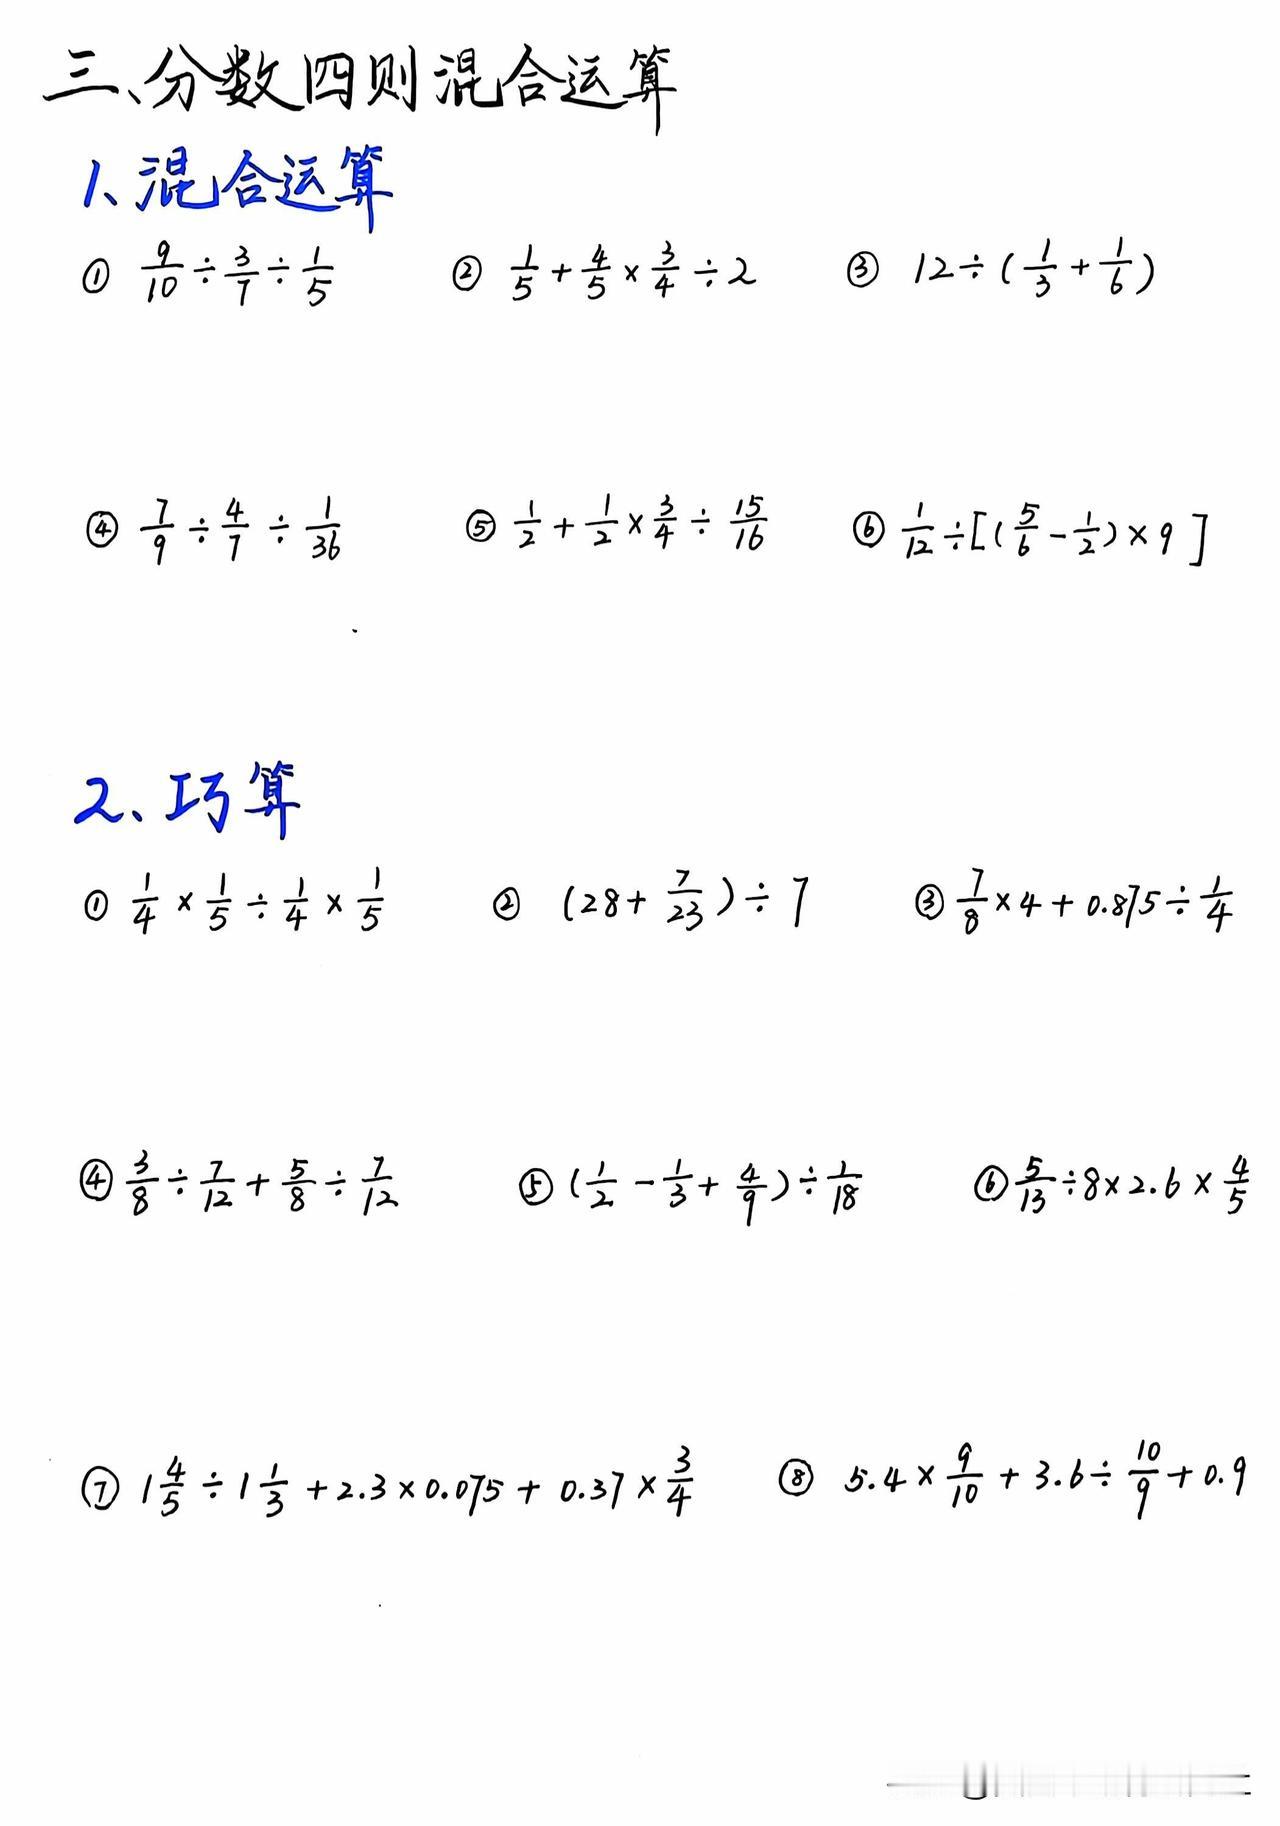 三、分数四则混合运算
1、混合运算
① 9/10 ÷ 3/7 ÷ 1/5 ② 1/5 + 4/5 × 3/4 ÷ 2 ③ 12 ÷ (1/3 + 1/6)
④ 7/9 ÷ 4/7 ÷ 1/36 ⑤ 1/2 + 1/2 × 3/4 ÷ 15/16 ⑥ 1/12 ÷ [(5/6 - 1/2) × 9]
2、巧算
① 1/4 × 1/5 ÷ 1/4 × 1/5 ② (28 + 7/23) ÷ 7 ③ 7/8 × 4 + 0.875 ÷ 1/4
④ 3/8 ÷ 7/12 + 5/8 ÷ 7/12 ⑤ (1/2 - 1/3 + 4/9) ÷ 1/18 ⑥ 5/13 ÷ 8 × 2.6 × 4/5
⑦ 1 4/5 ÷ 1 1/3 + 2.3 × 0.075 + 0.37 × 3/4 ⑧ 5.4 × 9/10 + 3.6 ÷ 10/9 + 0.9